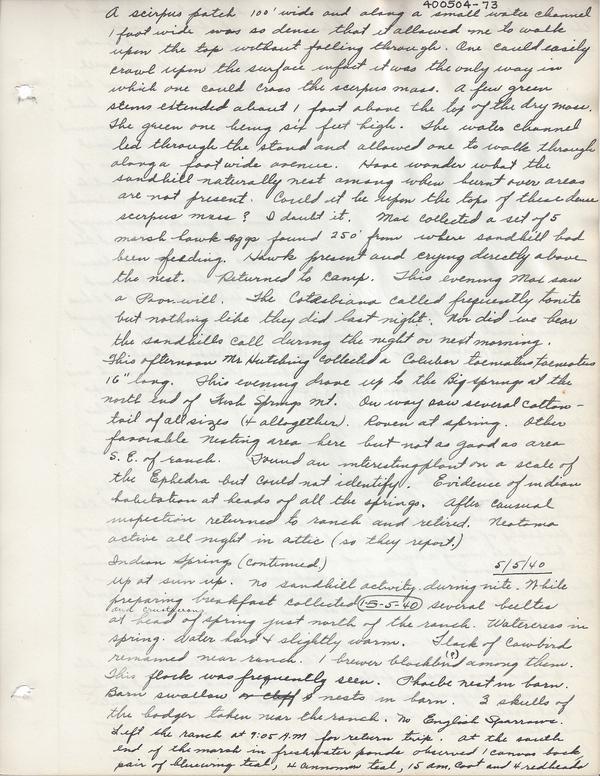 400504-73
A scirpus patch 100' wide and along a small water channel
1 foot wide was so dense that it allowed me to walk
upon the top without falling through. One could easily
crawl upon the surface infact it was the only way in
which one could cross the scerpus mass. A few green
stems extended about 1 foot above the top of the dry mass.
The green one being six feet high. The water channel
led through the stand and allowed one to walk through
along a foot wide avenue. Have wonder what the
sandhill naturally nest among when burnt over areas
are not present. Could it be upon the tops of these dense
scirpus mass? I doubt it. Mac collected a set of 5
marsh hawk eggs found 250' from where sandhill had
been feeding. Hawk present and crying directly above
the nest. Returned to camp. This evening Mac saw
a Poor-will. The Cotesbiana called frequently tonite
but nothing like they did last night. Nor did we hear
the sandhills call during the night or next morning.
This afternoon Mr Hutching collected a Coluber taeniatus taeniatus
16" long. This evening drove up to the Big springs at the
north end of Fish Springs Mt. On way saw several cotton-
tail of all sizes (4 altogether). Raven at spring. Other
favorable nesting area here but not as good as area
S. E. of ranch. Found an interesting plant on a scale of
the Ephedra but could not identify. Evidence of indian
habitation at heads of all the springs. After causual
inspection returned to ranch and retired. Neotoma
active all night in attic (so they report.)
Indian Spring (continued) 5/5/40
up at sun up. no sandhill activity during nite. While
preparing breakfast collected (1-5-5-40) several beetles
and crustacean
at head of spring just north of the ranch. Watercress in
spring. Water hard & slightly warm. Flock of Cowbird
remained near ranch. 1 brewer blackbird (?) among them.
This flock was frequently seen. Phoebe nest in barn.
Barn swallow or cliff nests in barn. 3 skulls of
the badger taken near the ranch. No English Sparrows.
Left the ranch at 9:05 A.M for return trip. at the south
end of the marsh in freshwater ponds observed 1 canvas back
pair of bluewing teal, 4 cinnamon teal, 15 am. coot and 4 redheads